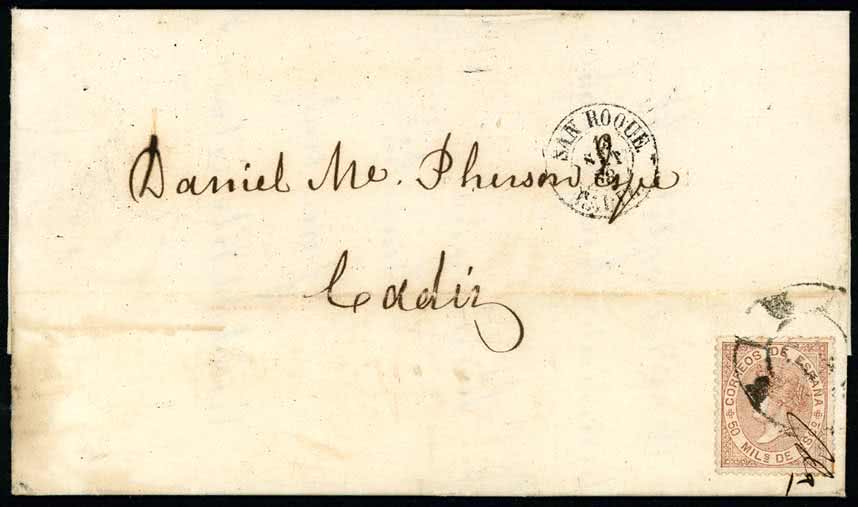 SAN ROQUE
Daniel Mc. Pherson Esqre
Cadiz
CORREOS DE ESPAÑA
50 MILS DE ESDO